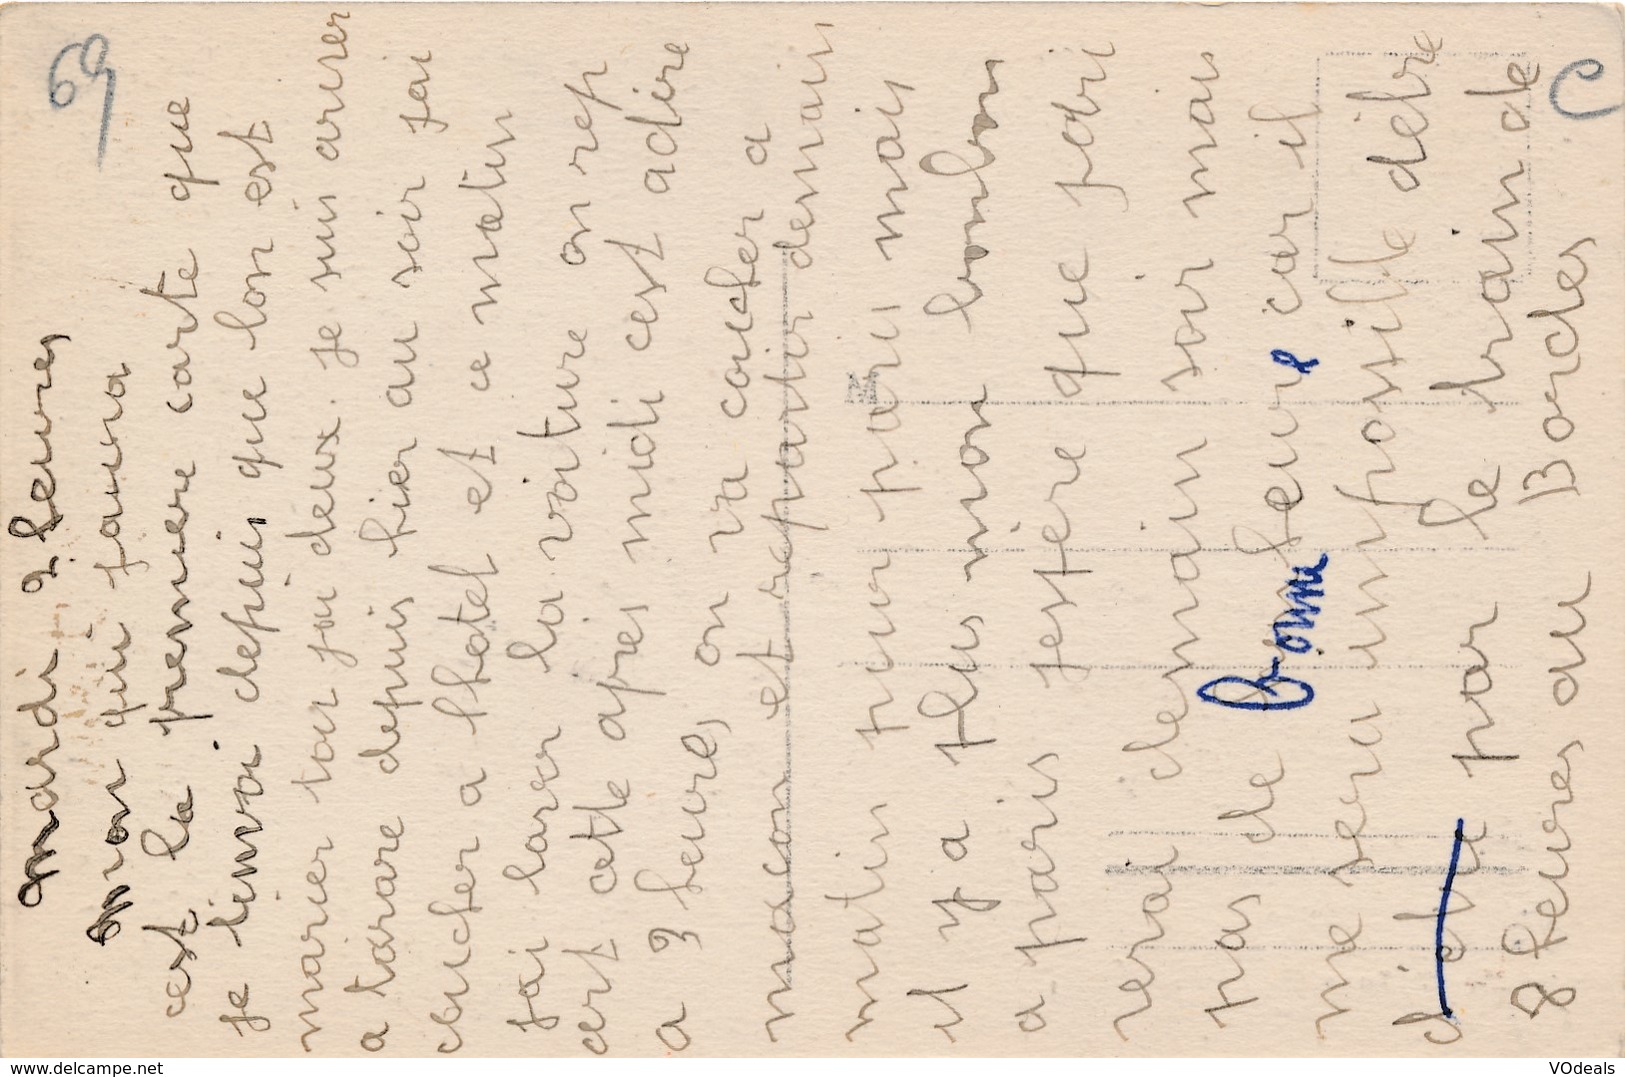 mardi 9 heures
mon qui jaura
cest la premiere carte que
je tenvoi depuis que lon est
marier tou jou deux. je suis arurer
a tarare depuis hier au soir jai
coucher a lhotel et ce matin
jai laver la voiture on rep
cert cette apres midi cest adire
a 3 heures on va coucher a
macon et repartir demain
matin pour paris mais
il y a plus mon bonbon
a paris jespere que parti
rerai demain soir mais
pas de bonne heure car il
me sera impossible dêtre
par le train de
8 heures au Bordes
69
C
www.delcampe.net
VOdeals